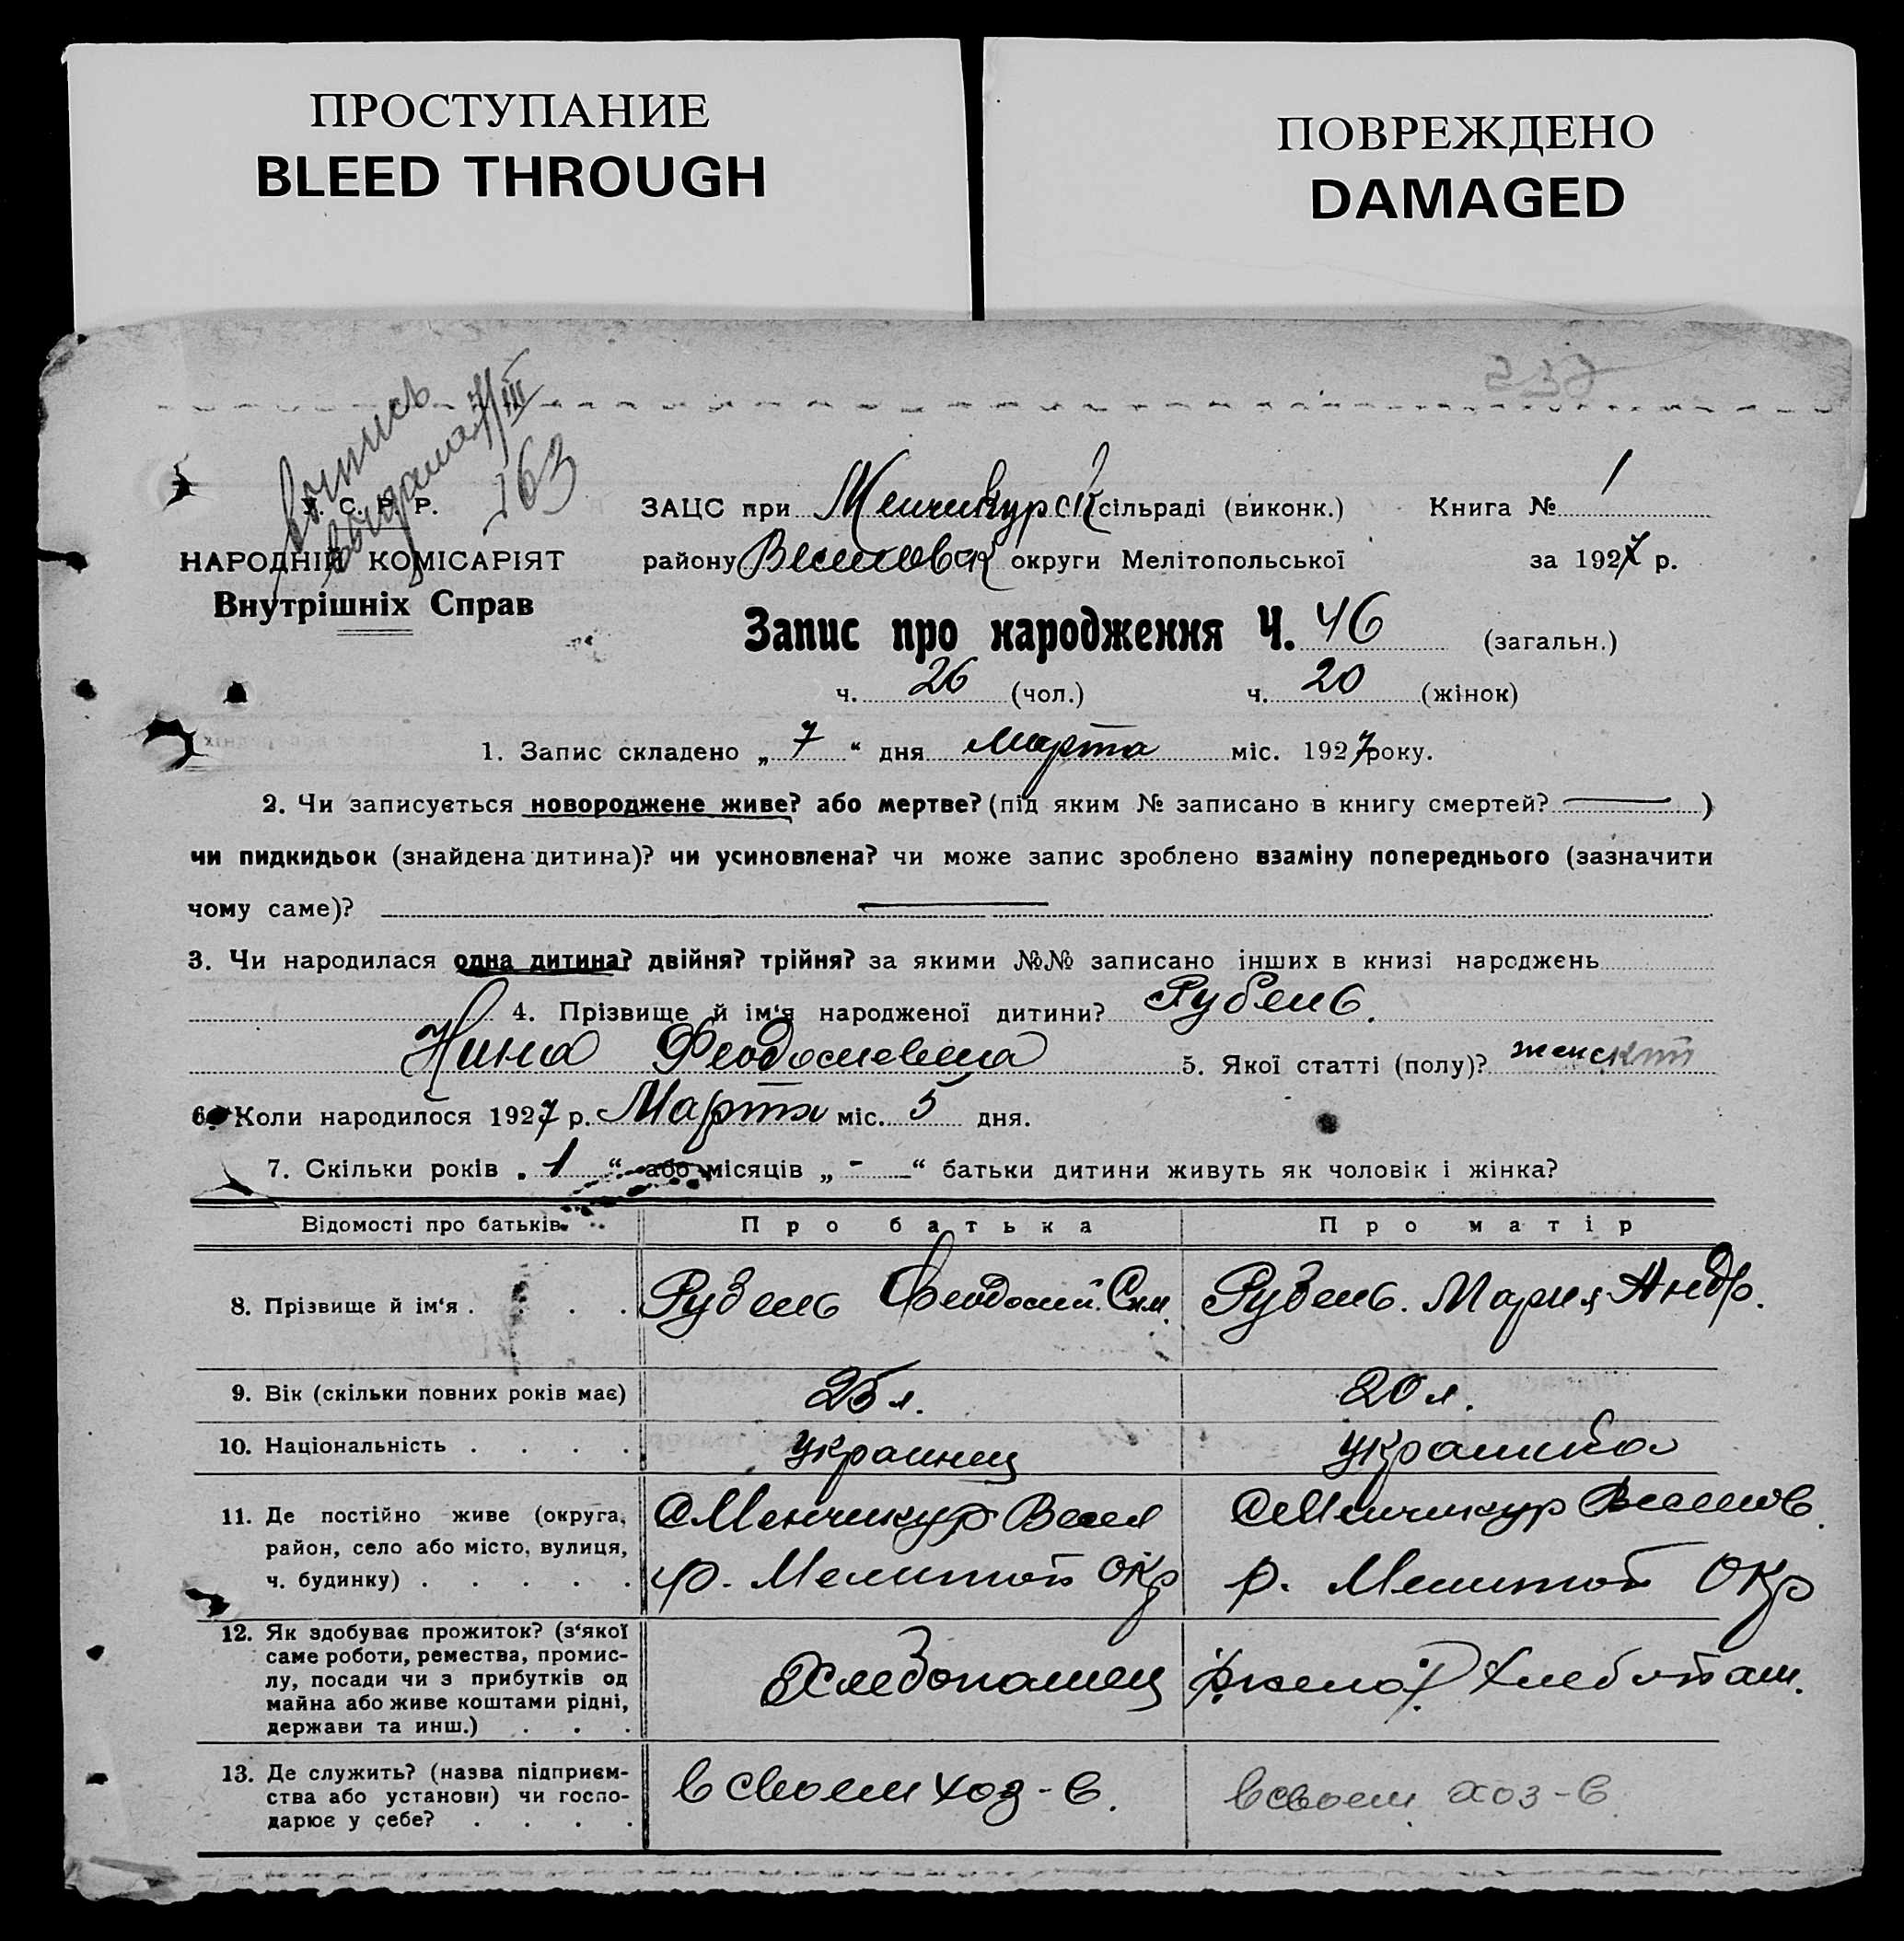 ПРОСТУПАНИЕ
BLEED THROUGH
ПОВРЕЖДЕНО
DAMAGED
163
У. С. Р. Р.
НАРОДНІЙ КОМІСАРІЯТ
Внутрішніх Справ
ЗАЦС при Менчикурск сільраді (виконк.) Книга № 1
району Веселовск округи Мелітопольської за 1927 р.
Запис про народження Ч. 46 (загальн.)
ч. 26 (чол.) ч. 20 (жінок)
1. Запис складено „ 7 “ дня Марта міс. 1927 року.
2. Чи записується новороджене живе? або мертве? (під яким № записано в книгу смертей? — )
чи пидкидьок (знайдена дитина)? чи усиновлена? чи може запис зроблено взаміну попереднього (зазначити
чому саме)? —
3. Чи народилася одна дитина? двійня? трійня? за якими №№ записано інших в книзі народжень
4. Прізвище й ім‘я народженої дитини? Рубель.
Нина Феодосиевна 5. Якої статті (полу)? женский
6. Коли народилося 1927 р. Марта міс. 5 дня.
7. Скільки років „ 1 “ або місяців „ - “ батьки дитини живуть як чоловік і жінка?
Відомості про батьків Про батька Про матір
8. Прізвище й ім‘я . . . . Рубель Феодосий Сим. Рубель. Мария Андр.
9. Вік (скільки повних років має) 25 л. 20 л.
10. Національність . . . . украинец украинка
11. Де постійно живе (округа, район, село або місто, вулиця, ч. будинку) . . . . .
с Менчикур Весел
р. Мелитоп окр
с Менчикур Веселов.
р. Мелитоп окр
12. Як здобуває прожиток? (з‘якої
саме роботи, ремества, промис-
лу, посади чи з прибутків од
майна або живе коштами рідні,
держави та инш.) . . .
Хлебопашец
жена хлебопаш.
13. Де служить? (назва підприєм-
ства або установи) чи госпо-
дарює у себе? . . . .
в своем хоз-в.
в своем хоз-в.